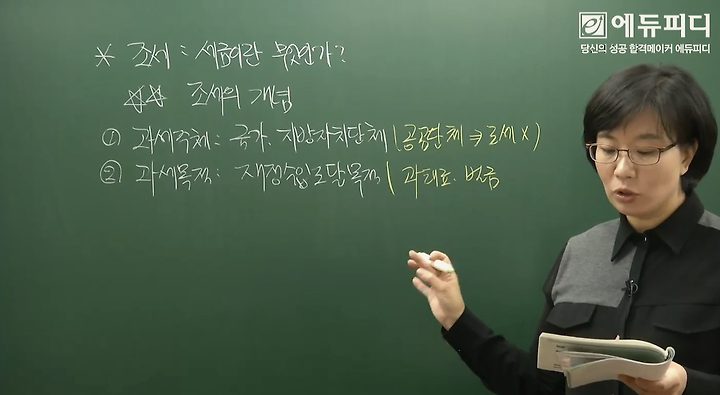 에듀피디
당신의 성공 합격메이커 에듀피디
* 조세 : 세금이란 무엇인가?
☆☆ 조세의 개념
① 과세주체 : 국가. 지방자치단체 (공공단체 ⇒ 조세 X)
② 과세목적 : 재정수입조달목적 ( 과태료. 벌금